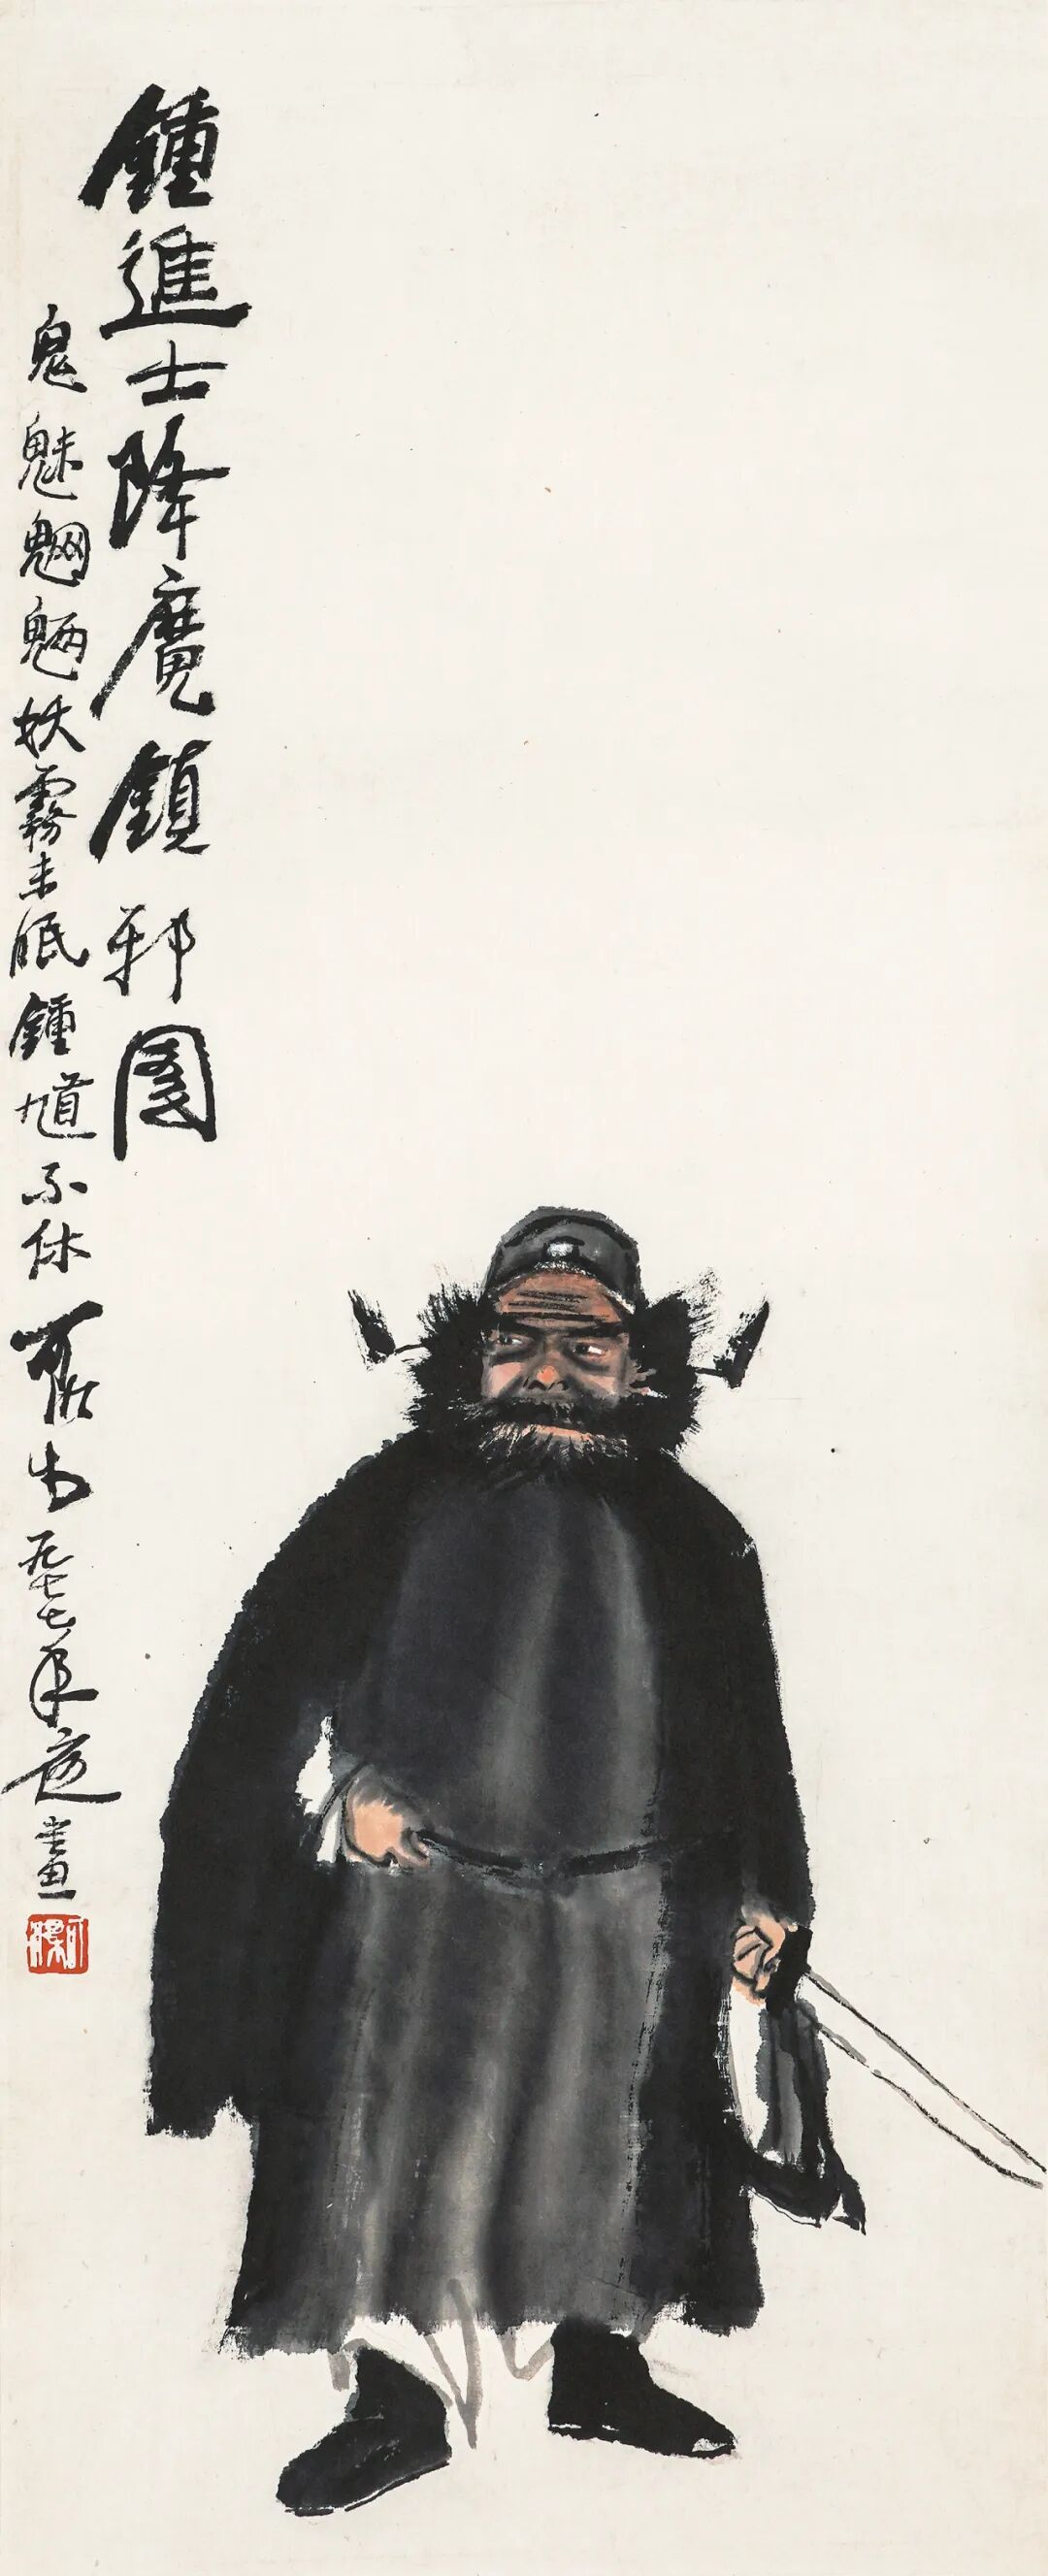 鍾進士降魔鎮邪图
鬼魅魍魎妖霧未眠鍾馗不休可染一九七七年畫
可染